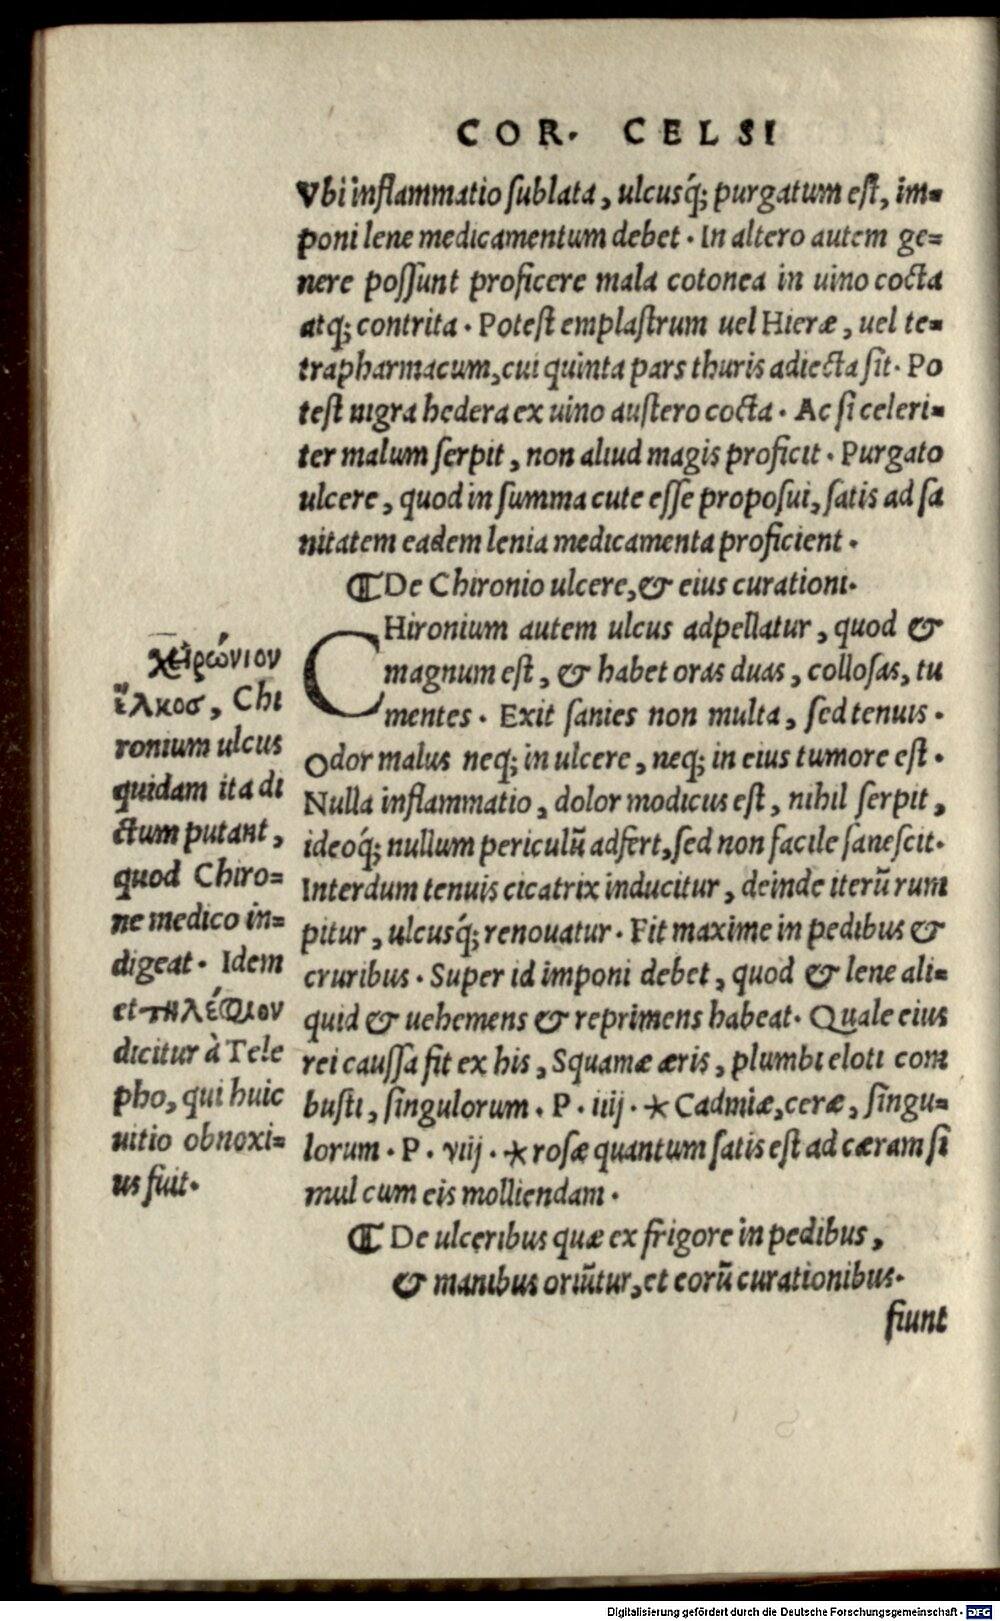 COR. CELSI
Vbi inflammatio sublata, ulcusq́; purgatum est, im=
poni lene medicamentum debet. In altero autem ge=
nere possunt proficere mala cotonea in uino cocta
atq; contrita. Potest emplastrum uel Hieræ, uel te=
trapharmacum, cui quinta pars thuris adiecta sit. Po
test nigra hedera ex uino austero cocta. Ac si celeri=
ter malum serpit, non aliud magis proficit. Purgato
ulcere, quod in summa cute esse proposui, satis ad sa
nitatem eadem lenia medicamenta proficient.
¶ De Chironio ulcere, & eius curationi.
CHironium autem ulcus adpellatur, quod &
magnum est, & habet oras duas, collosas, tu
mentes. Exit sanies non multa, sed tenuis.
Odor malus neq; in ulcere, neq; in eius tumore est.
Nulla inflammatio, dolor modicus est, nihil serpit,
ideoq́; nullum periculū adfert, sed non facile sanescit.
Interdum tenuis cicatrix inducitur, deinde iterū rum
pitur, ulcusq́; renouatur. Fit maxime in pedibus &
cruribus. Super id imponi debet, quod & lene ali=
quid & uehemens & reprimens habeat. Quale eius
rei caussa fit ex his, Squamæ æris, plumbi eloti com
busti, singulorum. P. iiij. * Cadmiæ, ceræ, singu=
lorum. P. viij. * rosæ quantum satis est ad cæram si
mul cum eis molliendam.
χειρώνιον
ἕλκοσ, Chi
ronium ulcus
quidam ita di
ctum putant,
quod Chiro=
ne medico in=
digeat. Idem
et τηλέφιον
dicitur à Tele
pho, qui huic
uitio obnoxi=
us fuit.
¶ De ulceribus quæ ex frigore in pedibus,
& manibus oriūtur, et eorū curationibus.
fiunt
Digitalisierung gefördert durch die Deutsche Forschungsgemeinschaft - DFG